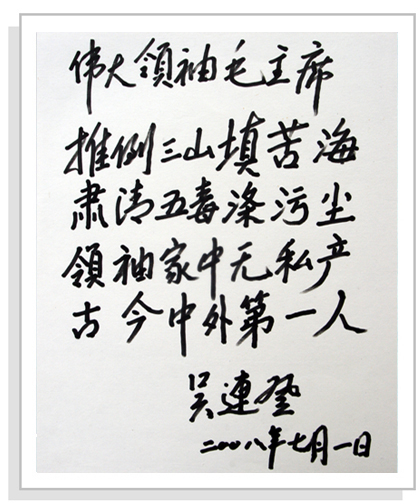 伟大領袖毛主席
推倒三山填苦海
肃清五毒涤污尘
領袖家中无私产
古今中外第一人
吴連登
二〇〇八年七月一日